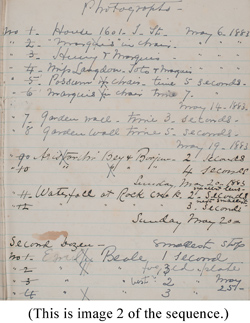 Photographs
No 1 - House 1601. I. St. May 6. 1883
" 2 - Marquis in chair.
" 3 - Henry & Marquis
" 4 - Mrs Langdon. Toto & Marquis
" 5 - Possum & chair time 5 seconds.
" 6 Marquis & chair time 7
May 14. 1883
" 7 - Garden wall - time 3 seconds -
" 8 Garden wall time 5 seconds.
May 19. 1883
" 9 2 seconds
" 10 " " 4 seconds
Sunday May 20. 1883
" 11 - Waterfall at Rock Creek 2
" 12 " " " " 3. seconds
Sunday May 20
Second Dozen - smallest stop
No 1 - Beale, 1 second
" 2 plate
" 3 " " 2 May
" 4 " 3
(This is image 2 of the sequence.)